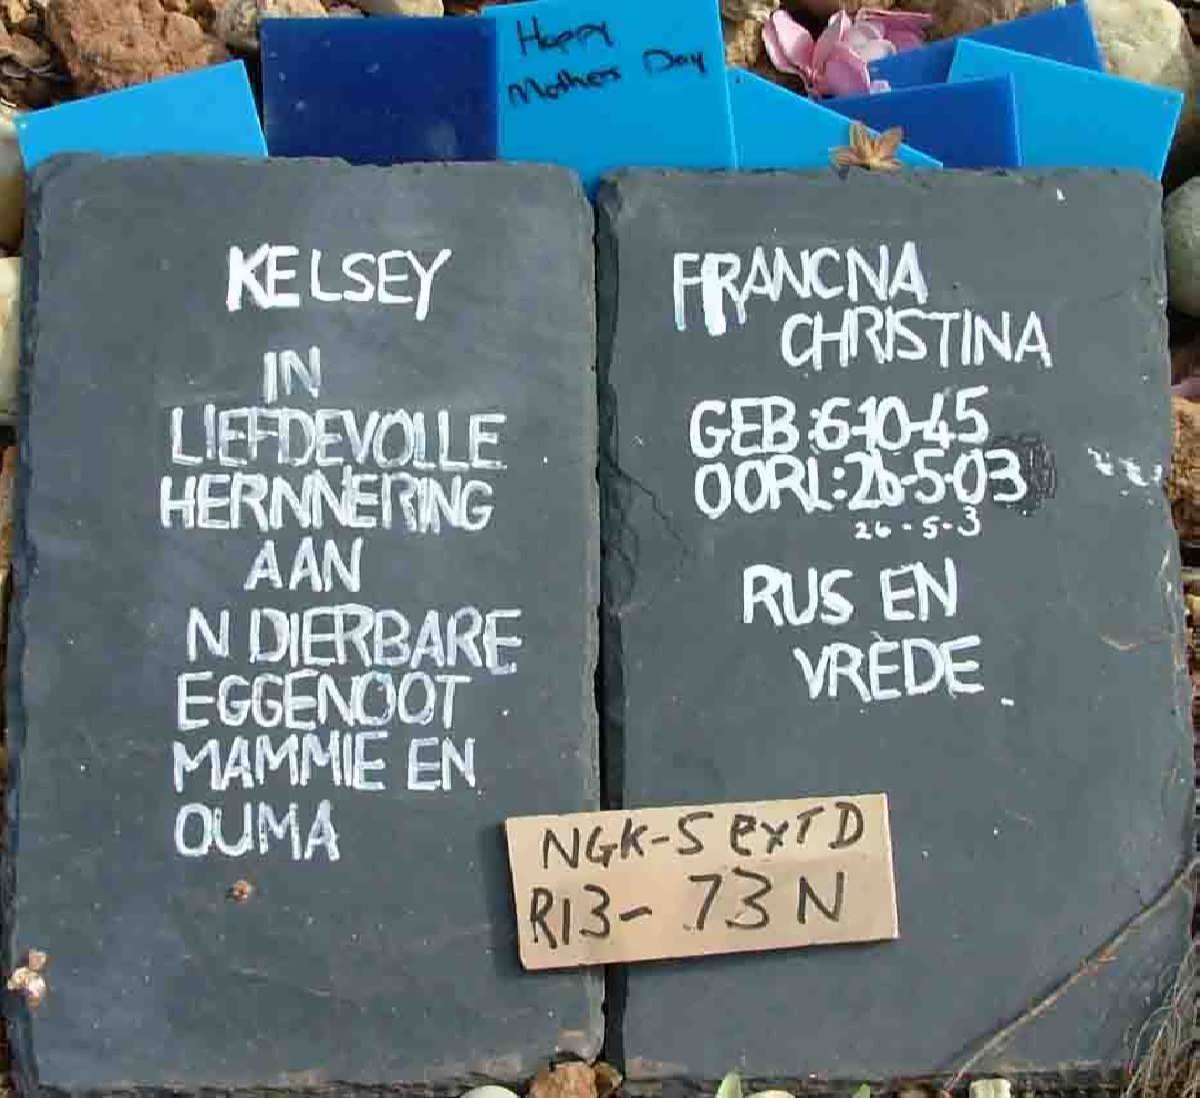 Happy
Mothers Day
KELSEY
IN
LIEFDEVOLLE
HERNNERING
AAN
N DIERBARE
EGGENOOT
MAMMIE EN
OUMA
FRANCNA
CHRISTINA
GEB:6-10-45
OORL:26-5-03
26-5-3
RUS EN
VREDE
NGK-5 EXT D
R13-73N